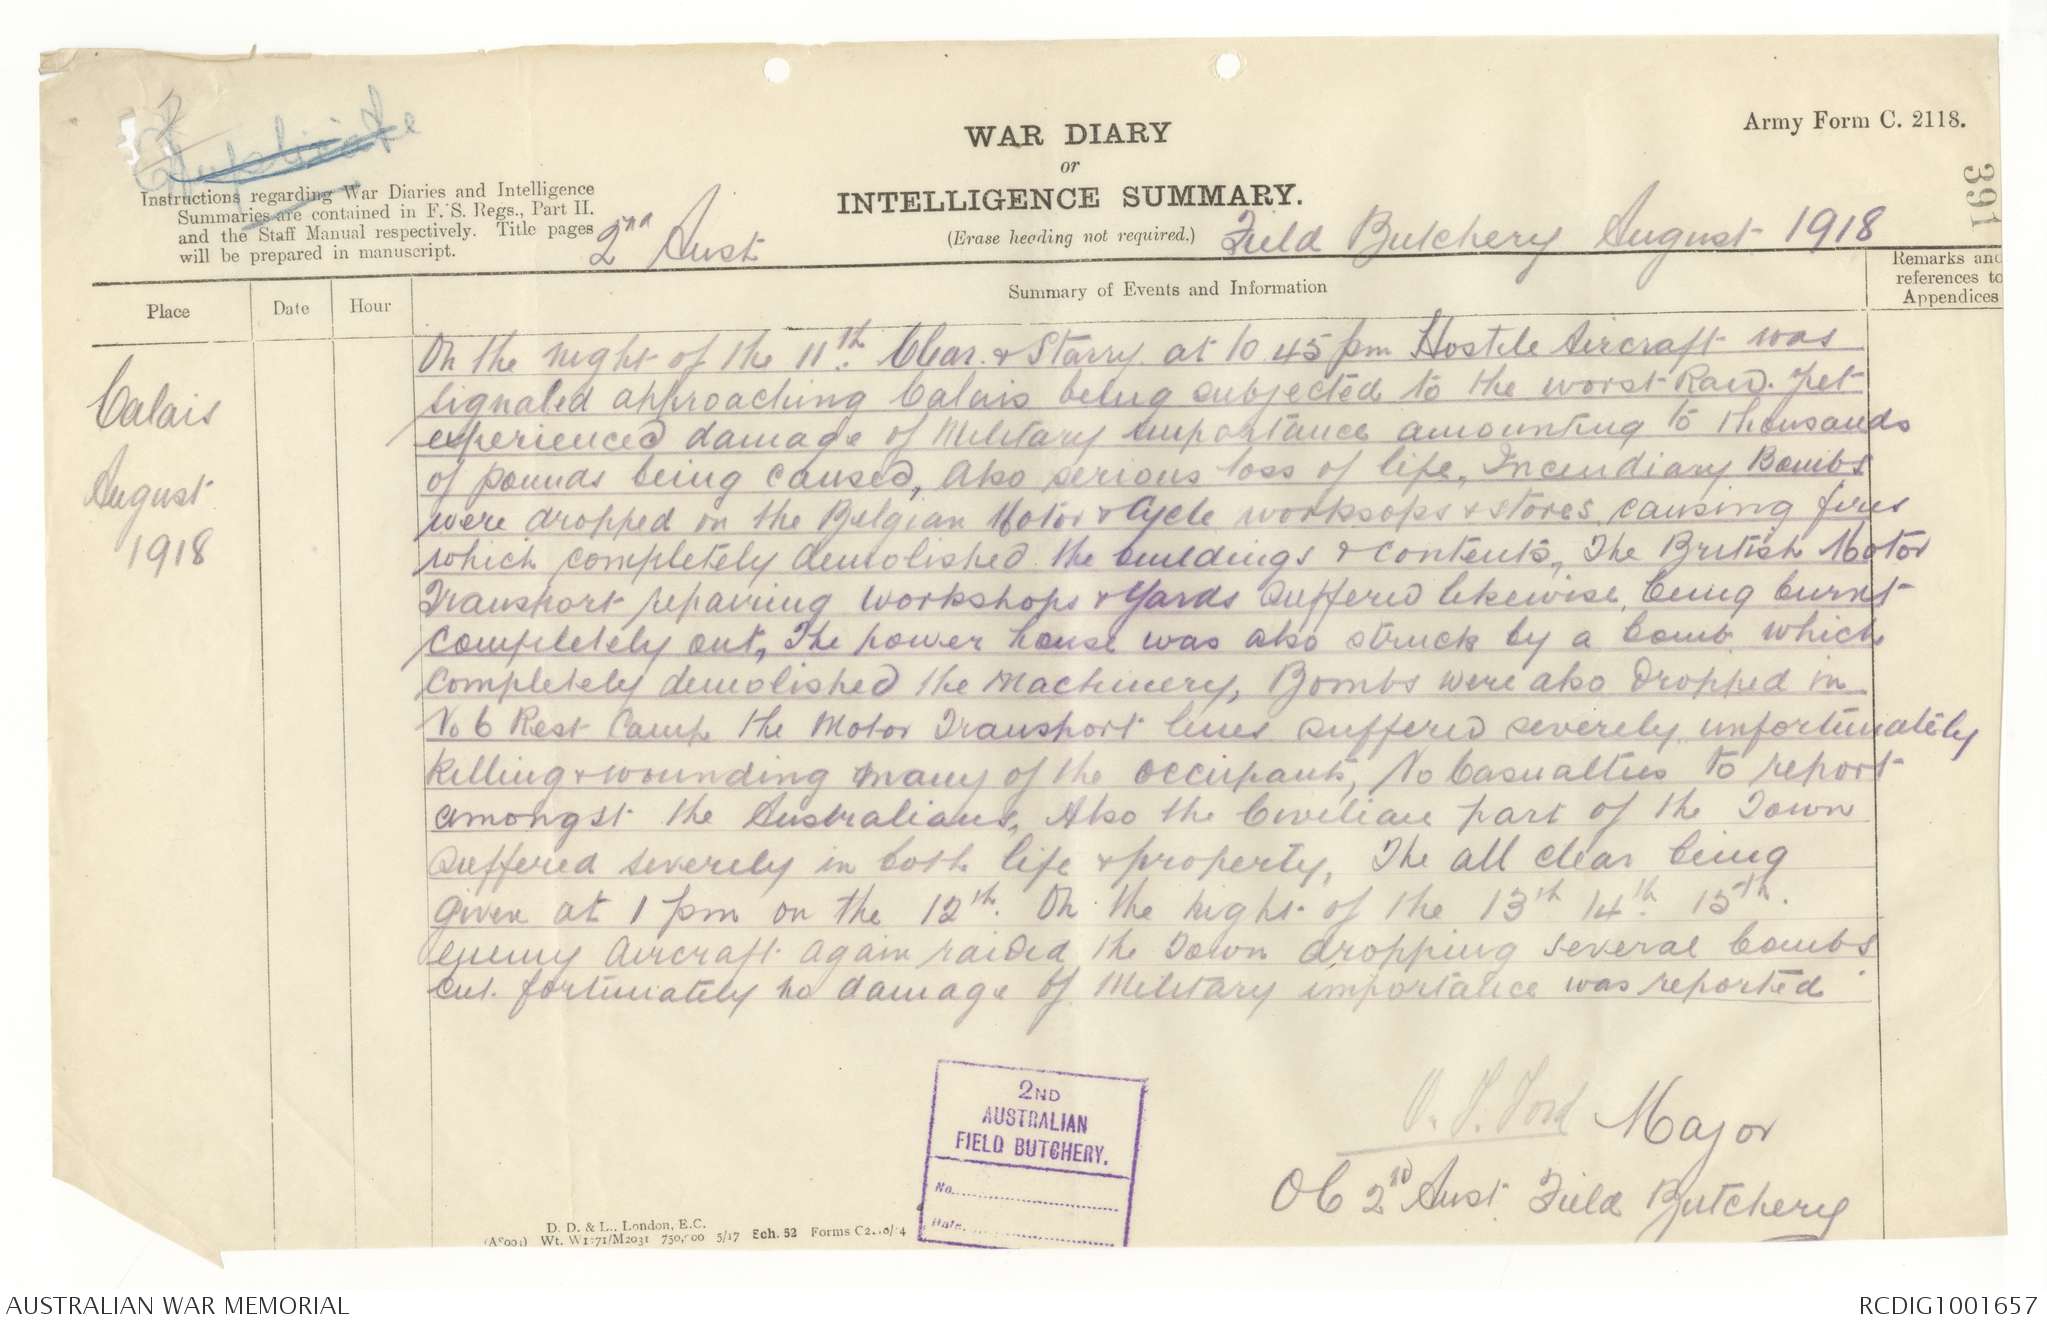 Duplicate
Army Form C. 2118.
WAR DIARY
or
INTELLIGENCE SUMMARY.
(Erase heading not required.)
Instructions regarding War Diaries and Intelligence
Summaries are contained in F. S. Regs., Part II.
and the Staff Manual respectively. Title pages
will be prepared in manuscript.
391
2nd Aust Field Butchery August 1918
Place
Date
Hour
Summary of Events and Information
Remarks and
references to
Appendices
Calais
August
1918
On the night of the 11th. Clear. & Starry. at 10.45 pm Hostile Aircraft was
signaled approaching Calais being subjected to the worst Raid. yet
experienced damage of Military importance amounting to thousands
of pounds being caused, also serious loss of life, Incendiary Bombs
were dropped on the Belgian Motor & Cycle worksops & stores causing fires
which completely demolished the buildings & contents, The British Motor
Transport repairing workshops & Yards suffered likewise, being burnt
completely out, The power house was also struck by a bomb which
completely demolished the machinery, Bombs were also dropped in
No 6 Rest Camp the Motor Transport lines suffered severely unfortunately
killing & wounding many of the occupants, No Casualties to report
amongst the Australians, Also the Civilian part of the Town
suffered severely in both life & property, The all clear being
given at 1 pm on the 12th. On the night of the 13th 14th. 15th.
enemy Aircraft again raided the Town dropping several bombs
but fortunately no damage of Military importance was reported
Ford Major
OC 2nd Aust. Field Butchery
2ND
AUSTRALIAN
FIELD BUTCHERY.
No.
Date.
D. D. & L., London, E.C.
Wt. W1771/M2031 750,000 5/17 Sch. 52 Forms
AUSTRALIAN WAR MEMORIAL
RCDIG1001657